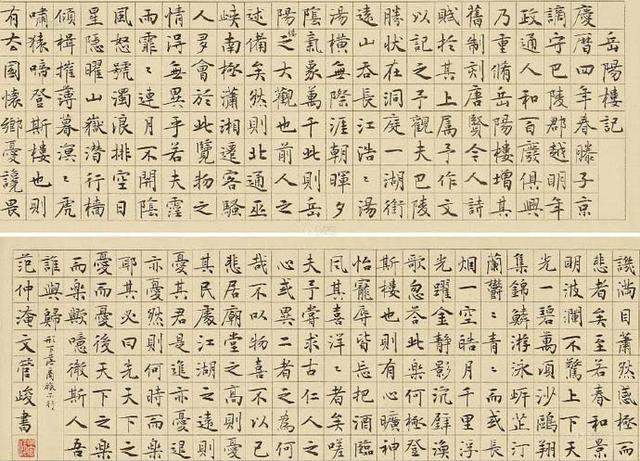 岳陽樓記
慶曆四年春滕子京
謫守巴陵郡越明年
政通人和百廢俱興
乃重脩岳陽樓增其
舊制刻唐賢今人詩
賦於其上属予作文
以記之予觀夫巴陵
勝狀在洞庭一湖銜
遠山吞長江浩〻湯
湯橫無際涯朝暉夕
陰氣象萬千此則岳
陽樓之大觀也前人之
述備矣然則北通巫
峽南極瀟湘遷客騷
人多會於此覽物之
情得無異乎若夫霪
雨霏〻連月不開陰
風怒號濁浪排空日
星隱曜山嶽潛行檣
傾楫摧薄暮溟〻虎
嘯猿啼登斯樓也則
有去國懷鄉憂讒畏
譏滿目蕭然感極而
悲者矣至若春和景
明波瀾不驚上下天
光一碧萬頃沙鷗翔
集錦鱗游泳岸芷汀
蘭鬱〻青〻而或長
烟一空皓月千里浮
光躍金靜影沉璧漁
歌忽答此樂何極登
斯樓也則有心曠神
怡寵辱皆忘把酒臨
風其喜洋〻者矣嗟
夫予嘗求古仁人之
心或異二者之為何
哉不以物喜不以己
悲居廟堂之高則憂
其民處江湖之遠則
憂其君是進亦憂退
亦憂然則何時而樂
耶其必曰先天下之
憂而憂後天下之樂
而樂歟噫微斯人吾
誰與歸
商旅不行
范仲淹文管峻書